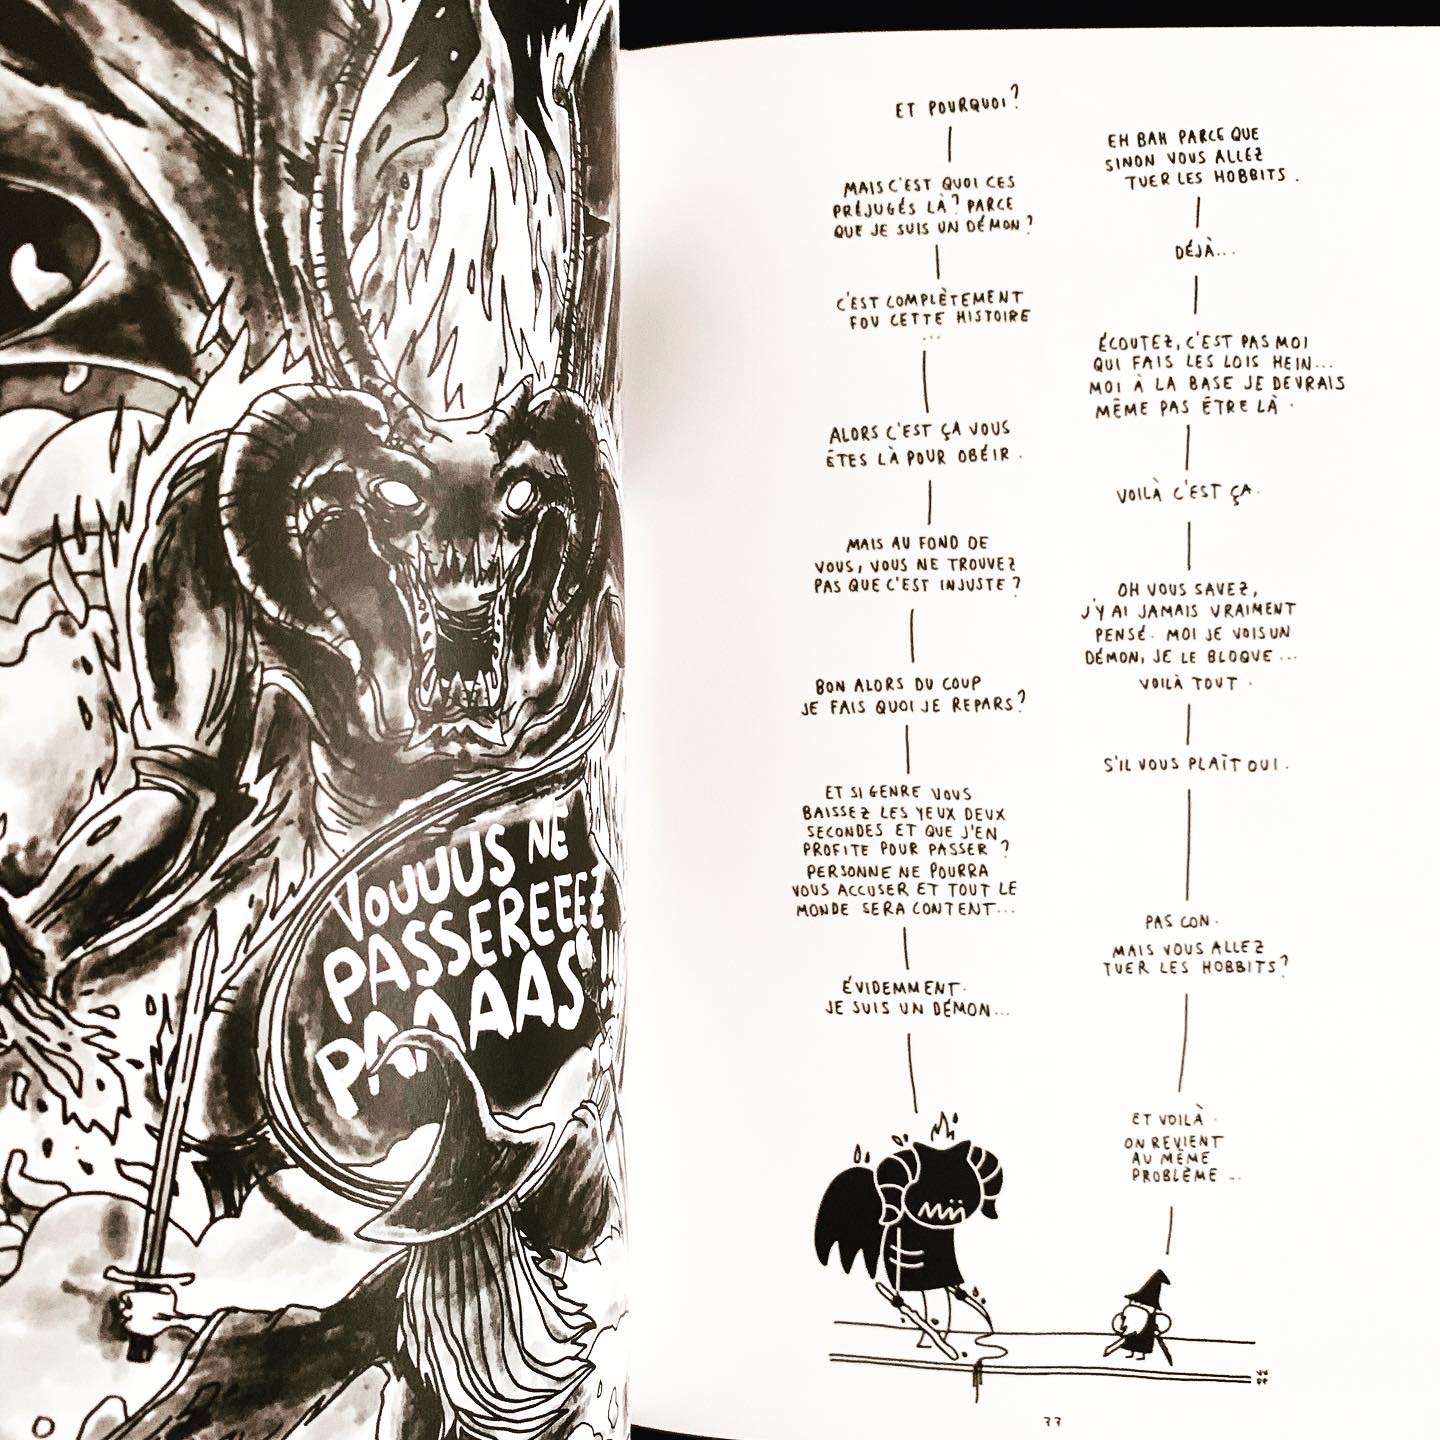 VOUUUS NE
PASSEREEEZ
PAAAAS!!!
ET POURQUOI?
EH BAH PARCE QUE
SINON VOUS ALLEZ
TUER LES HOBBITS.
MAIS C'EST QUOI CES
PRÉJUGÉS LÀ? PARCE
QUE JE SUIS UN DÉMON?
DÉJÀ...
C'EST COMPLÈTEMENT
FOU CETTE HISTOIRE
...
ÉCOUTEZ, C'EST PAS MOI
QUI FAIS LES LOIS HEIN...
MOI À LA BASE JE DEVRAIS
MÊME PAS ÊTRE LÀ.
ALORS C'EST ÇA VOUS
ÊTES LÀ POUR OBÉIR.
VOILÀ C'EST ÇA.
MAIS AU FOND DE
VOUS, VOUS NE TROUVEZ
PAS QUE C'EST INJUSTE?
OH VOUS SAVEZ,
J'Y AI JAMAIS VRAIMENT
PENSÉ. MOI JE VOIS UN
DÉMON, JE LE BLOQUE...
VOILÀ TOUT.
BON ALORS DU COUP
JE FAIS QUOI JE REPARS?
S'IL VOUS PLAÎT OUI.
ET SI GENRE VOUS
BAISSEZ LES YEUX DEUX
SECONDES ET QUE J'EN
PROFITE POUR PASSER?
PERSONNE NE POURRA
VOUS ACCUSER ET TOUT LE
MONDE SERA CONTENT...
PAS CON.
MAIS VOUS ALLEZ
TUER LES HOBBITS?
ÉVIDEMMENT.
JE SUIS UN DÉMON...
ET VOILÀ.
ON REVIENT
AU MÊME
PROBLÈME...
77